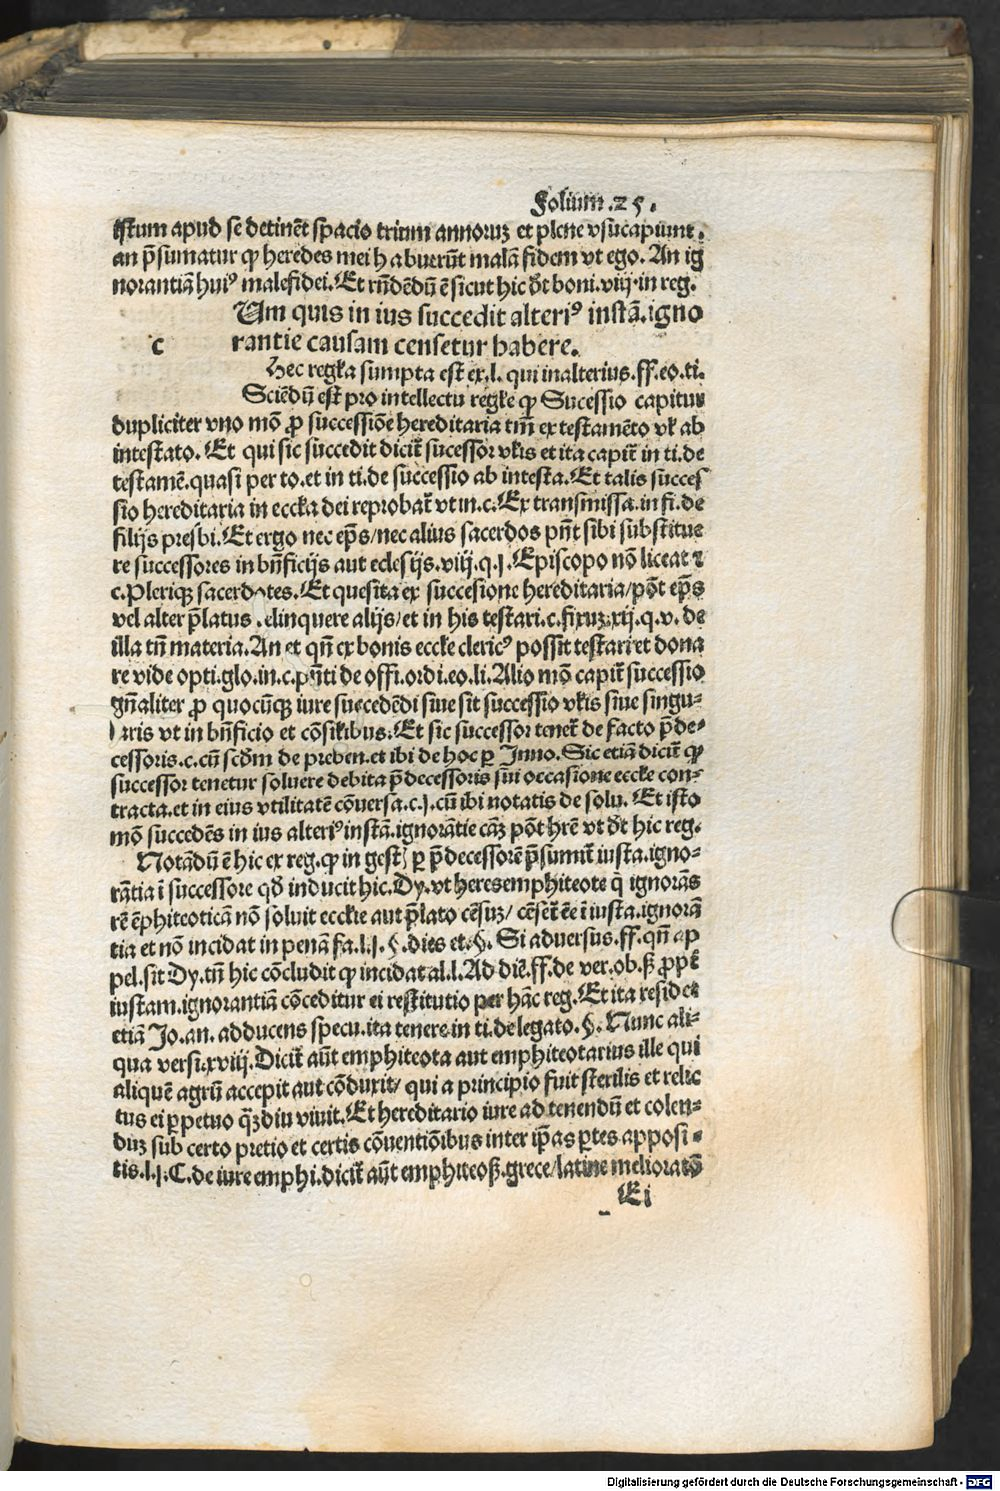 Folium.25.
istum apud se detinẽt spacio trium annoruꝫ et plene vsucapiunt.
an p̃sumatur ꝙ heredes mei habuerũt malã fidem vt ego. An ig
norantiã huiꝰ malefidei. Et rñdẽdũ ẽ sicut hic ðt boni.viij.in reg.
Um quis in ius succedit alteriꝰ instã.igno
c rantie causam censetur habere.
Hec regl̃a sumpta est ex.l. qui in alterius.ff.eo.ti.
Sciẽdũ est pro intellectu regl̃e ꝙ Sucessio capitur
dupliciter vno mõ ꝓ successiõe hereditaria tm̃ ex testamẽto vl̃ ab
intestato. Et qui sic succedit dicit̃ sucessor vl̃is et ita capit̃ in ti.de
testamẽ.quasi per to.et in ti.de successio ab intesta. Et talis succes
sio hereditaria in eccl̃a dei reprobat̃ vt in.c. Ex transmissa.in fi.de
filijs presbi. Et ergo nec ep̃s/nec alius sacerdos pñt sibi substitue
re successores in bñficijs aut eclesijs.viij.q.j. Episcopo nõ liceat ⁊
c. Pleriqꝫ sacerdotes. Et quesita ex succesione hereditaria/põt ep̃s
vel alter p̃latus .elinquere alijs/et in his testari.c.fixuꝫ.xij.q.v. de
illa tñ materia. An et qñ ex bonis eccl̃e clericꝰ possit testari et dona
re vide opti.glo.in.c.pñti de offi.ordi.eo.li. Alio mõ capit̃ successio
gñaliter ꝓ quocũqꝫ iure succedẽdi siue sit successio vl̃is siue singu⸗
laris vt in bñficio et cõsil̃ibus. Et sic successor tenet̃ de facto p̃de⸗
cessoris.c.cũ scðm de preben.et ibi de hoc ꝑ Inno. Sic etiã dicũt ꝙ
successor tenetur soluere debita p̃decessoris sui occasione eccl̃e con⸗
tracta.et in eius vtilitatẽ cõuersa.c.j.cũ ibi notatis de solu. Et isto
mõ succedẽs in ius alteriꝰ instã.ignorãtie cãꝫ põt hr̃e vt ðt hic reg.
Notãdũ ẽ hic ex reg.ꝙ in gest] ꝑ p̃decessorẽ p̃sumit̃ iusta.igno⸗
rãtia ĩ successore qð inducit hic. Dy. vt heres emphiteote q̃ ignorãs
rẽ ẽphiteoticã nõ soluit eccl̃ie aut p̃lato cẽsuꝫ/ cẽset̃ ẽe ĩ iusta.ignorã
tia et nõ incidat in penã fa.l.j.§.dies et.§. Si aduersus.ff.qñ ap
pel.sit Dy.tñ hic cõcludit ꝙ incidat al.l. Ad diẽ.ff.de ver.ob.ꝭ ꝓpt̃
iustam.ignorantiã cõceditur ei restitutio per hãc reg. Et ita residet
etiã Jo.an. adducens specu.ita tenere in ti.de legato.§. Nunc ali⸗
qua versi.xviij. Dicit̃ aũt emphiteota aut emphiteotarius ille qui
aliquẽ agrũ accepit aut cõduxit/ qui a principio fuit sterilis et relic
tus ei ꝑpetuo qꝫdiu viuit. Et hereditario iure ad tenendũ et colen⸗
duꝫ sub certo pretio et certis cõuentiõibus inter ip̃as ꝑtes apposi⸗
tis.l.j. C. de iure emphi.dicit̃ aũt emphiteoꝭ.grece/latine melioratõ
Ei
Digitalisierung gefördert durch die Deutsche Forschungsgemeinschaft - DFG